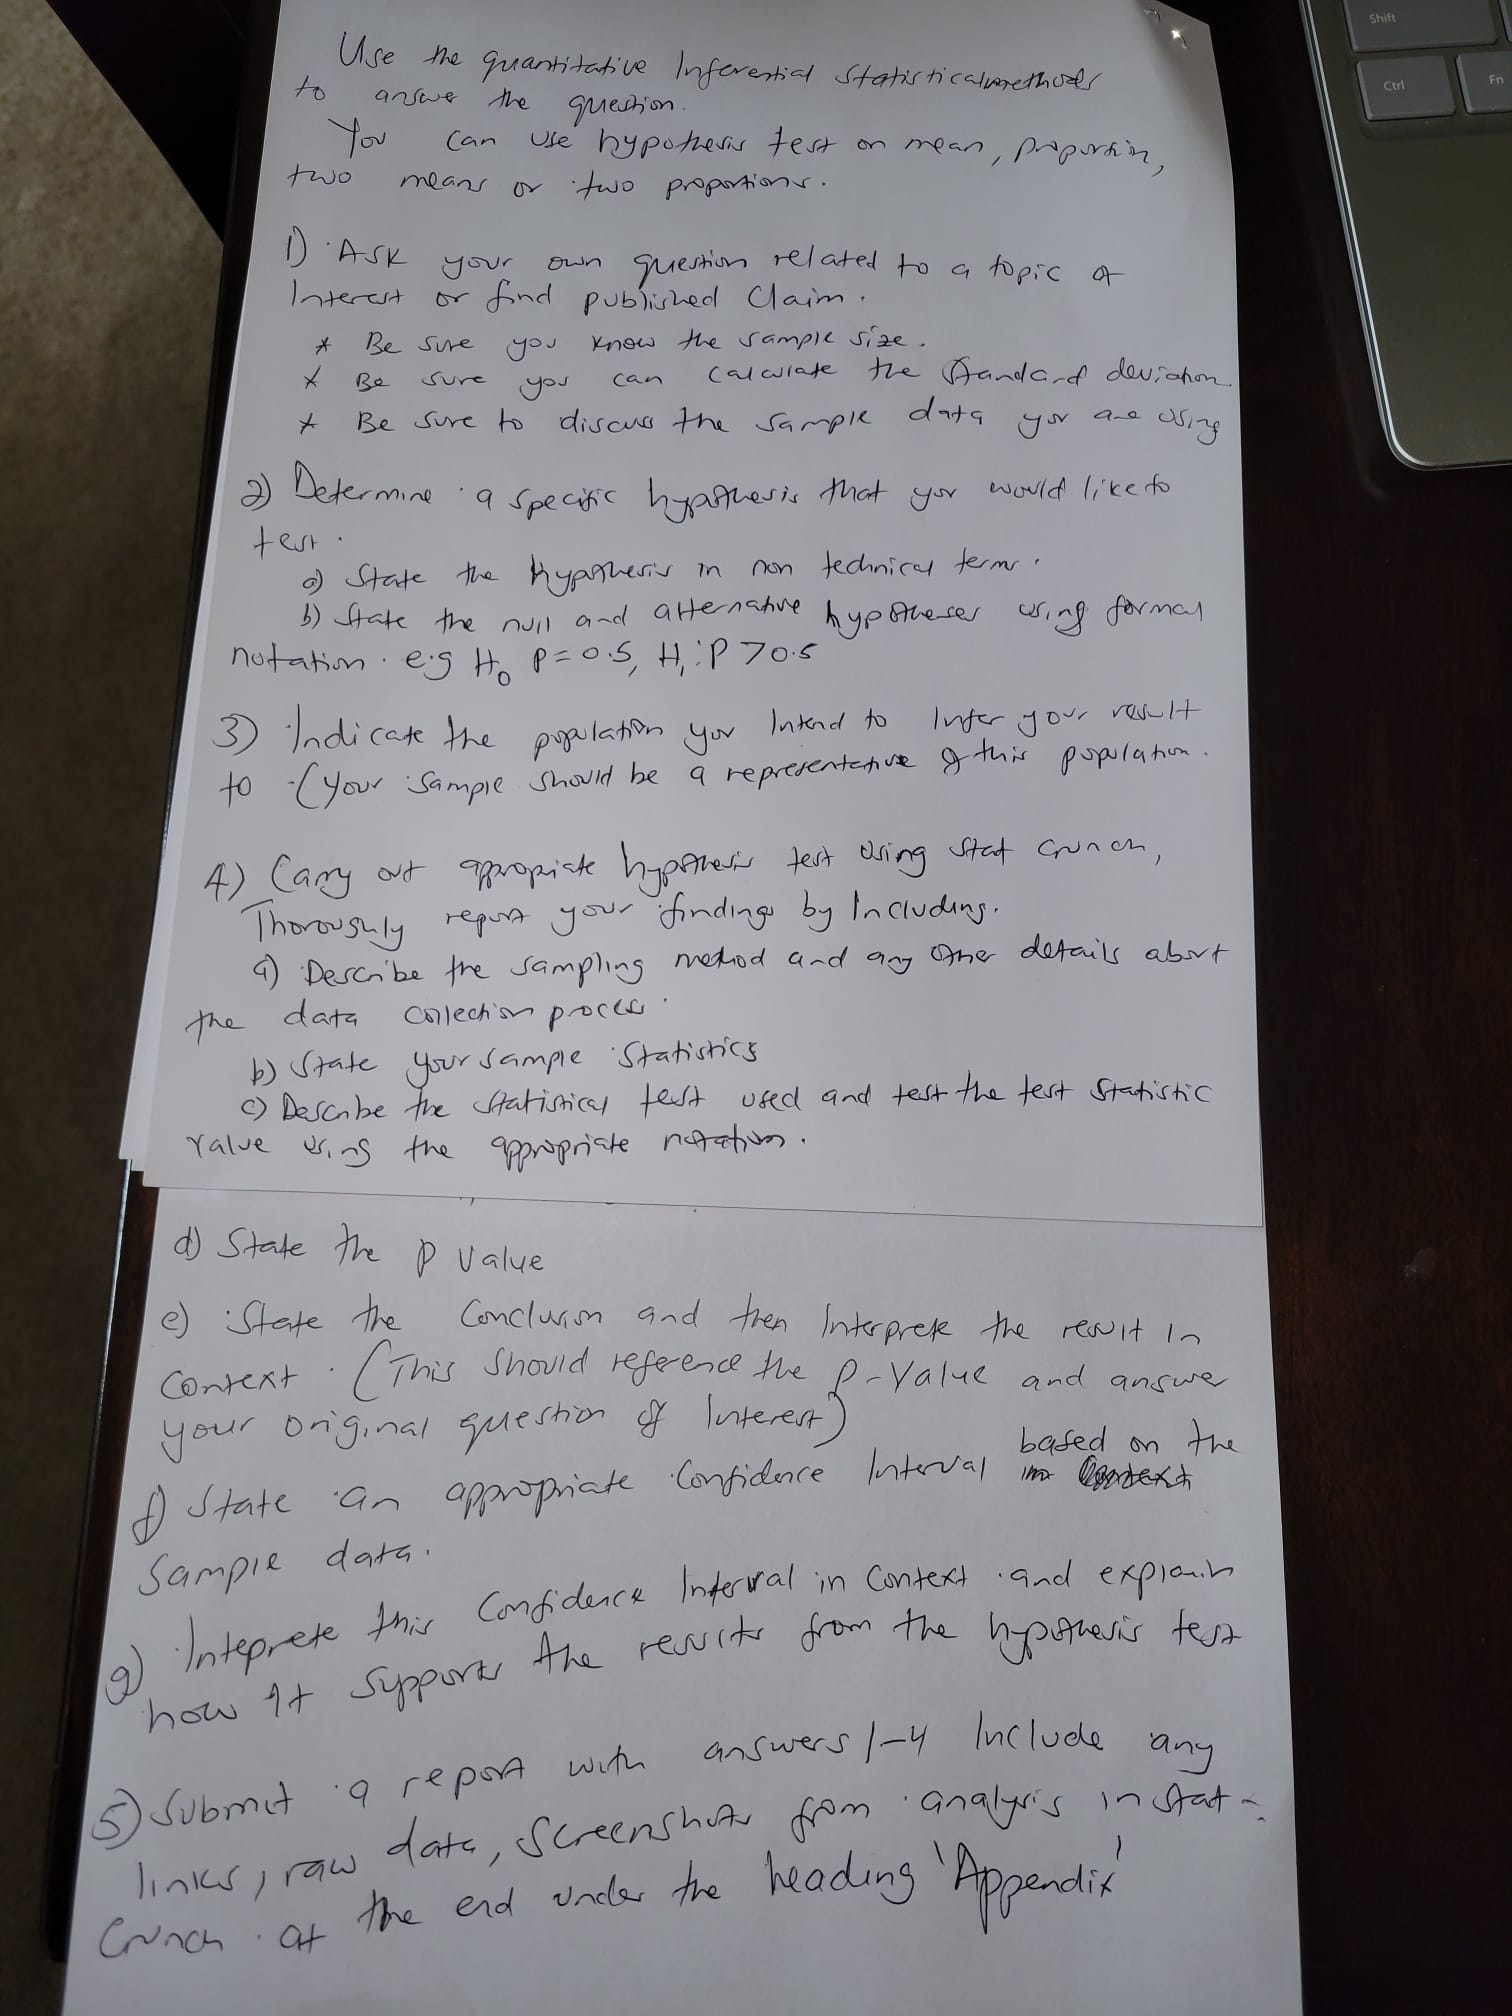 Shift
Ctrl
Fn
Use the quantitative Inferential Statistical methods
to answer the question.
You can use hypothesis test on mean, proportion,
two means or two proportions.
1) Ask your own question related to a topic of
Interest or find published claim.
* Be sure you know the sample size.
* Be sure you can calculate the standard deviation
* Be sure to discuss the sample data you are using
2) Determine a specific hypothesis that you would like to
test.
a) State the hypothesis in non technical terms.
b) State the null and alternative hypotheses using formal
notation. e.g H₀ P=0.5, H₁: P>0.5
3) Indicate the population you Intend to Infer your result
to (your sample should be a representative of this population.
4) Carry out appropriate hypothesis test using stat crunch,
Thoroughly report your findings by Including.
a) Describe the sampling method and any other details about
the data collection process.
b) State your sample statistics
c) Describe the statistical test used and test the test statistic
value using the appropriate notation.
d) State the p value
e) State the Conclusion and then Interprete the result In
context. (This should reference the p-value and answer
your original question of Interest)
f) State an appropriate Confidence Interval based on the
sample data.
g) Inteprete this Confidence Interval in context and explain
how It supports the results from the hypothesis test
5) Submit a report with answers 1-4 Include any
links, raw data, Screenshots from analysis in Stat-
Crunch. at the end under the heading 'Appendix'